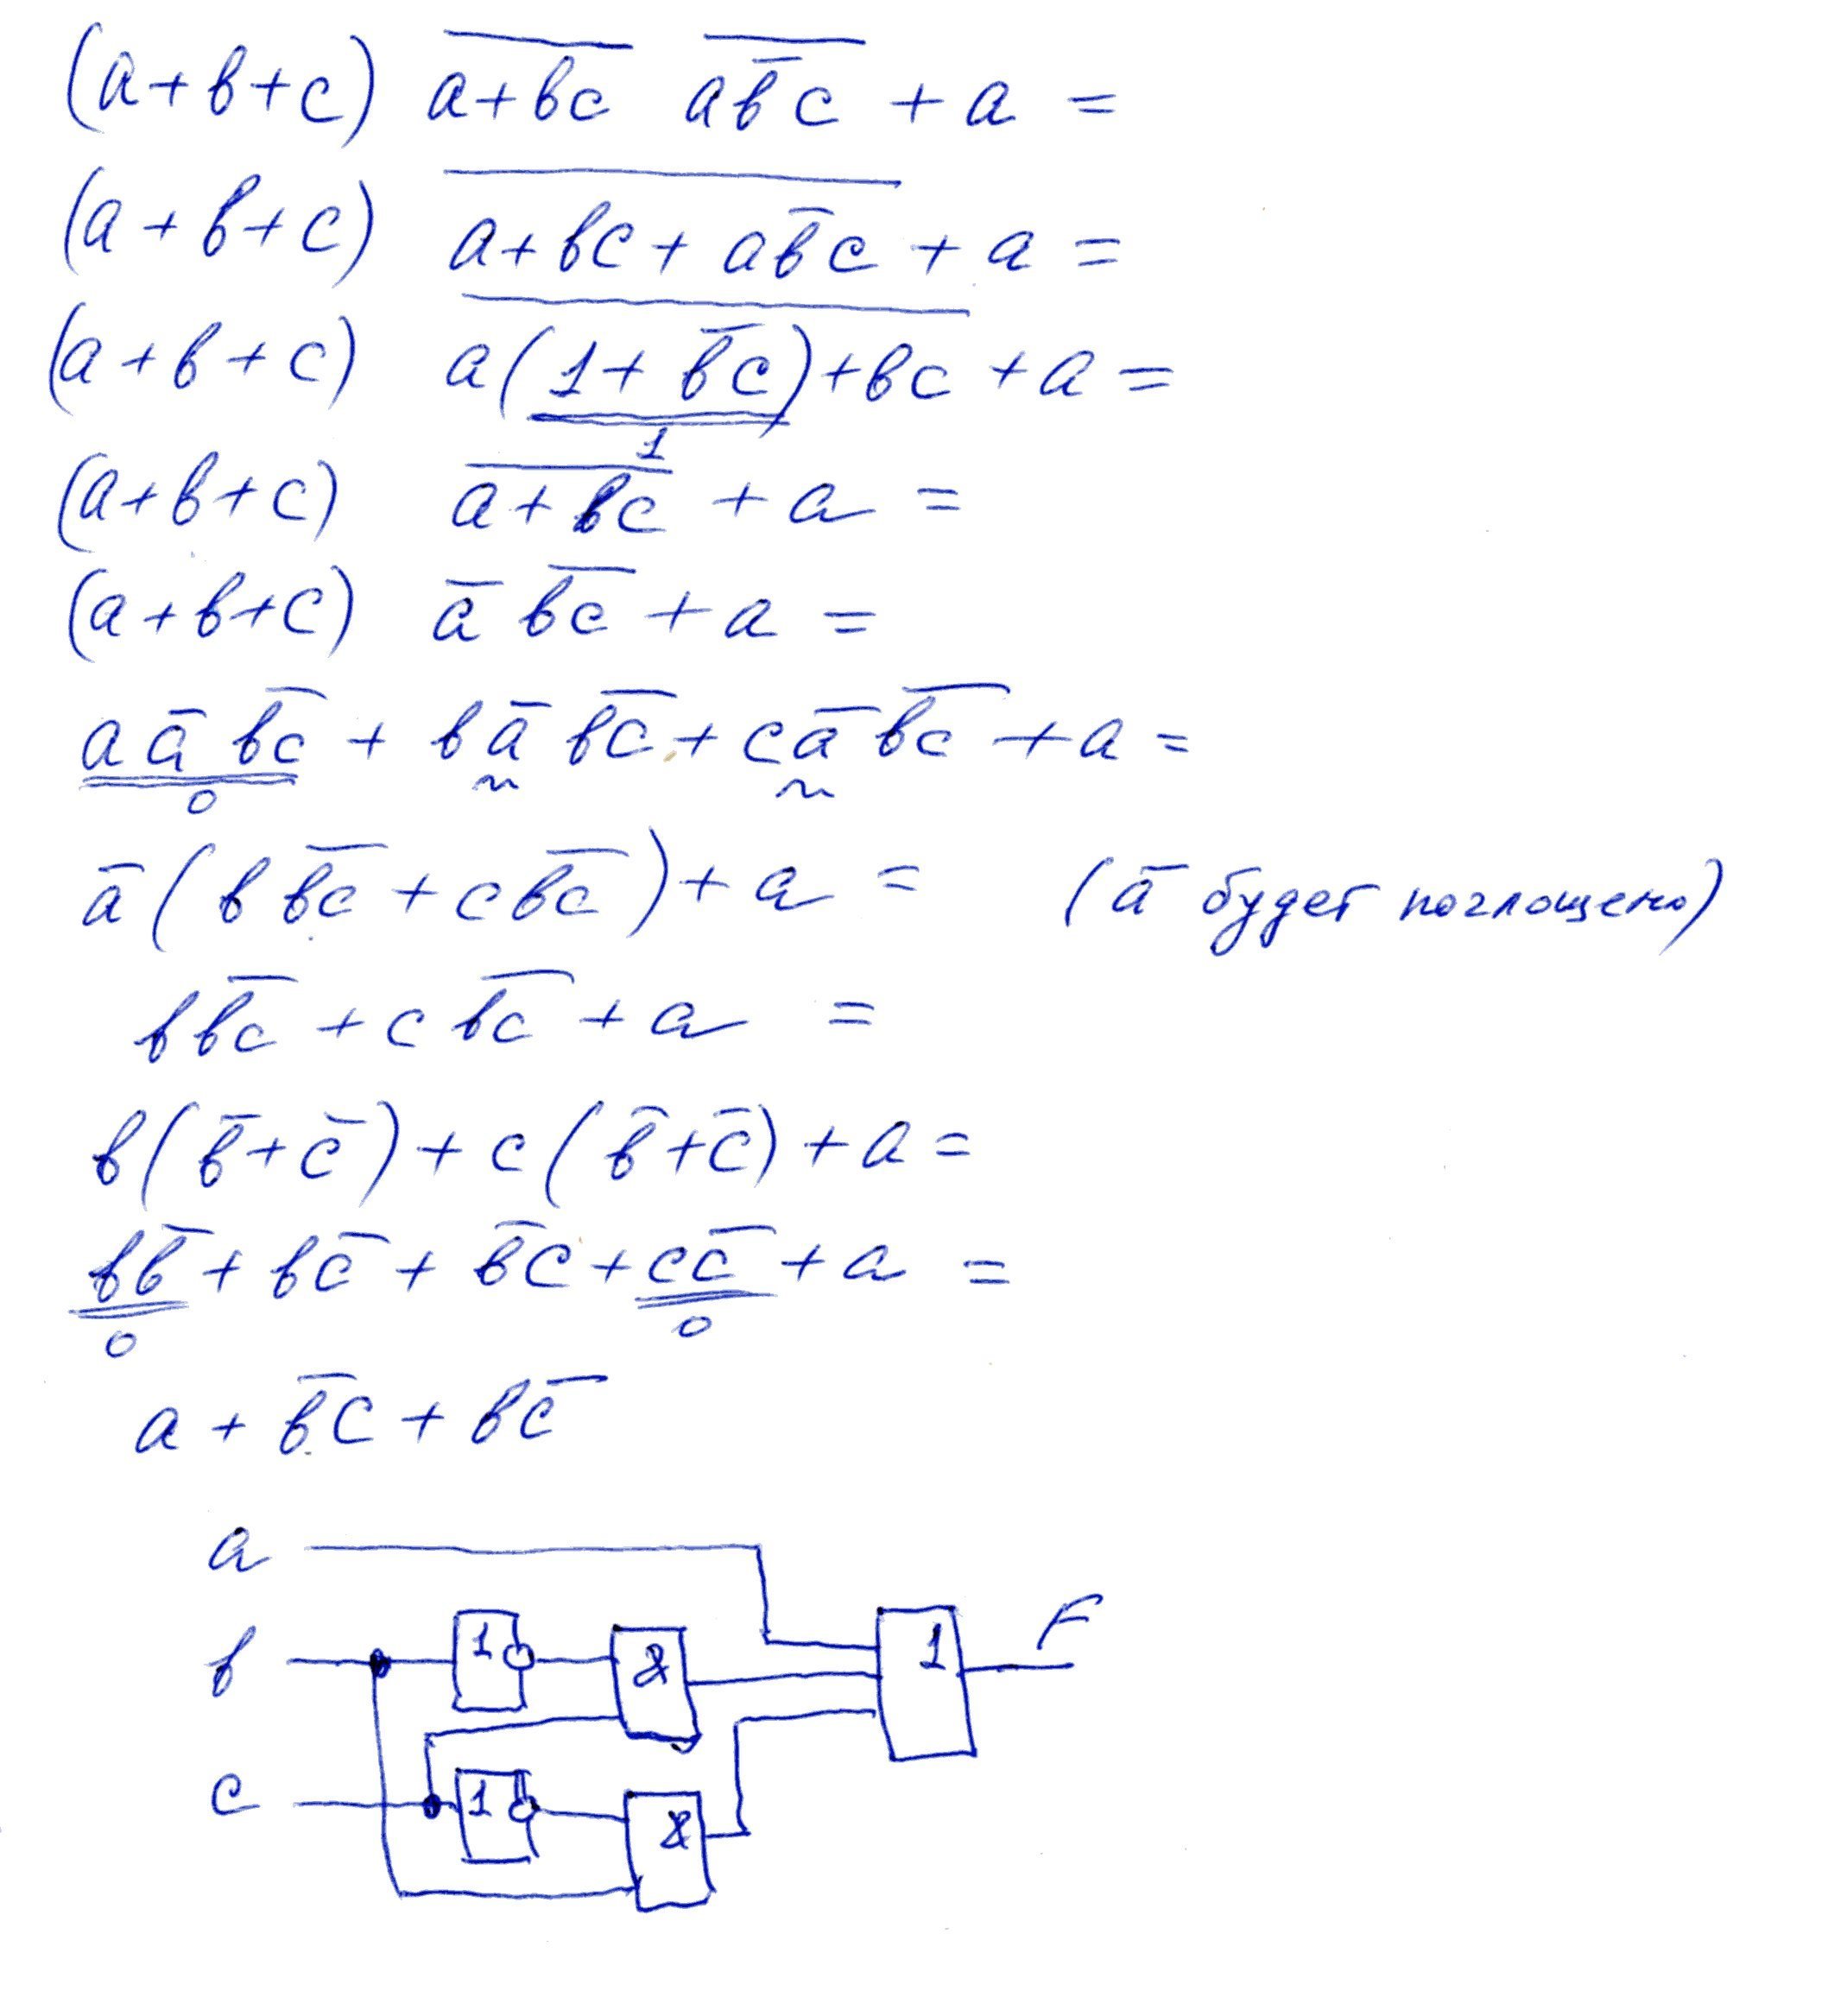 (a+b+c) \overline{a+bc} \overline{a\bar{b}c} + a =
(a+b+c) \overline{a+bc+a\bar{b}c} + a =
(a+b+c) \overline{a(1+\bar{b}c)+bc} + a =
1
(a+b+c) \overline{a+bc} + a =
(a+b+c) \bar{a} \overline{bc} + a =
a\bar{a}\overline{bc} + b\bar{a}\overline{bc} + c\bar{a}\overline{bc} + a =
0
\bar{a}(b\overline{bc} + c\overline{bc}) + a = (\bar{a} будет поглощено)
b\overline{bc} + c\overline{bc} + a =
b(\bar{b}+\bar{c}) + c(\bar{b}+\bar{c}) + a =
b\bar{b} + b\bar{c} + \bar{b}c + c\bar{c} + a =
0 0
a + \bar{b}c + b\bar{c}
a
b 1 & 1 F
c 1 &